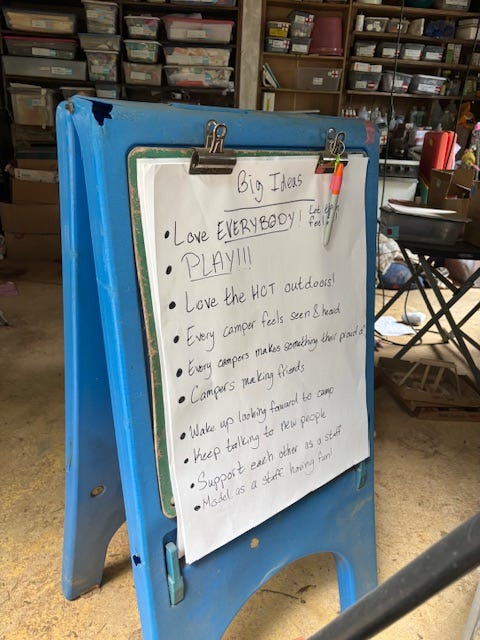 Big Ideas
• Love EVERYBODY! Let
feel
• PLAY!!!
• Love the HOT outdoors!
• Every camper feels seen & heard
• Every campers makes something their proud of
• Campers making friends
• Wake up looking foward to camp
• Keep talking to new people
• Support each other as a staff
• Model as a staff having fun!